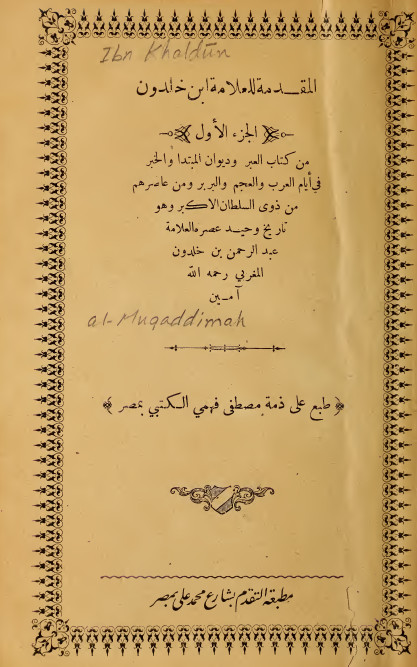 Ibn Khaldūn
المقـدمة للعلامة ابن خلدون
الجزء الأول
من كتاب العبر وديوان المبتدا والخبر
في أيام العرب والعجم والبربر ومن عاصرهم
من ذوى السلطان الاكبر وهو
تاريخ وحيـد عصره العلامة
عبد الرحمن بن خلدون
المغربي رحمه الله
آمـين
al-Muqaddimah
﴿ طبع على ذمة مصطفى فهمي الكتبي بمصر ﴾
مطبعة التقدم بشارع محمد علي بمصر